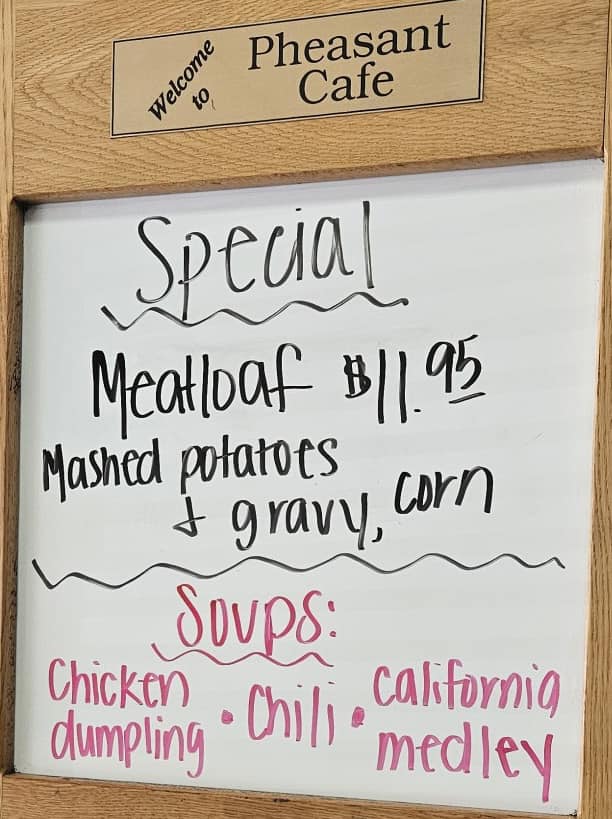 Welcome to Pheasant Cafe
Special
Meatloaf $11.95
Mashed potatoes
+ gravy, corn
Soups:
Chicken dumpling • Chili • california medley